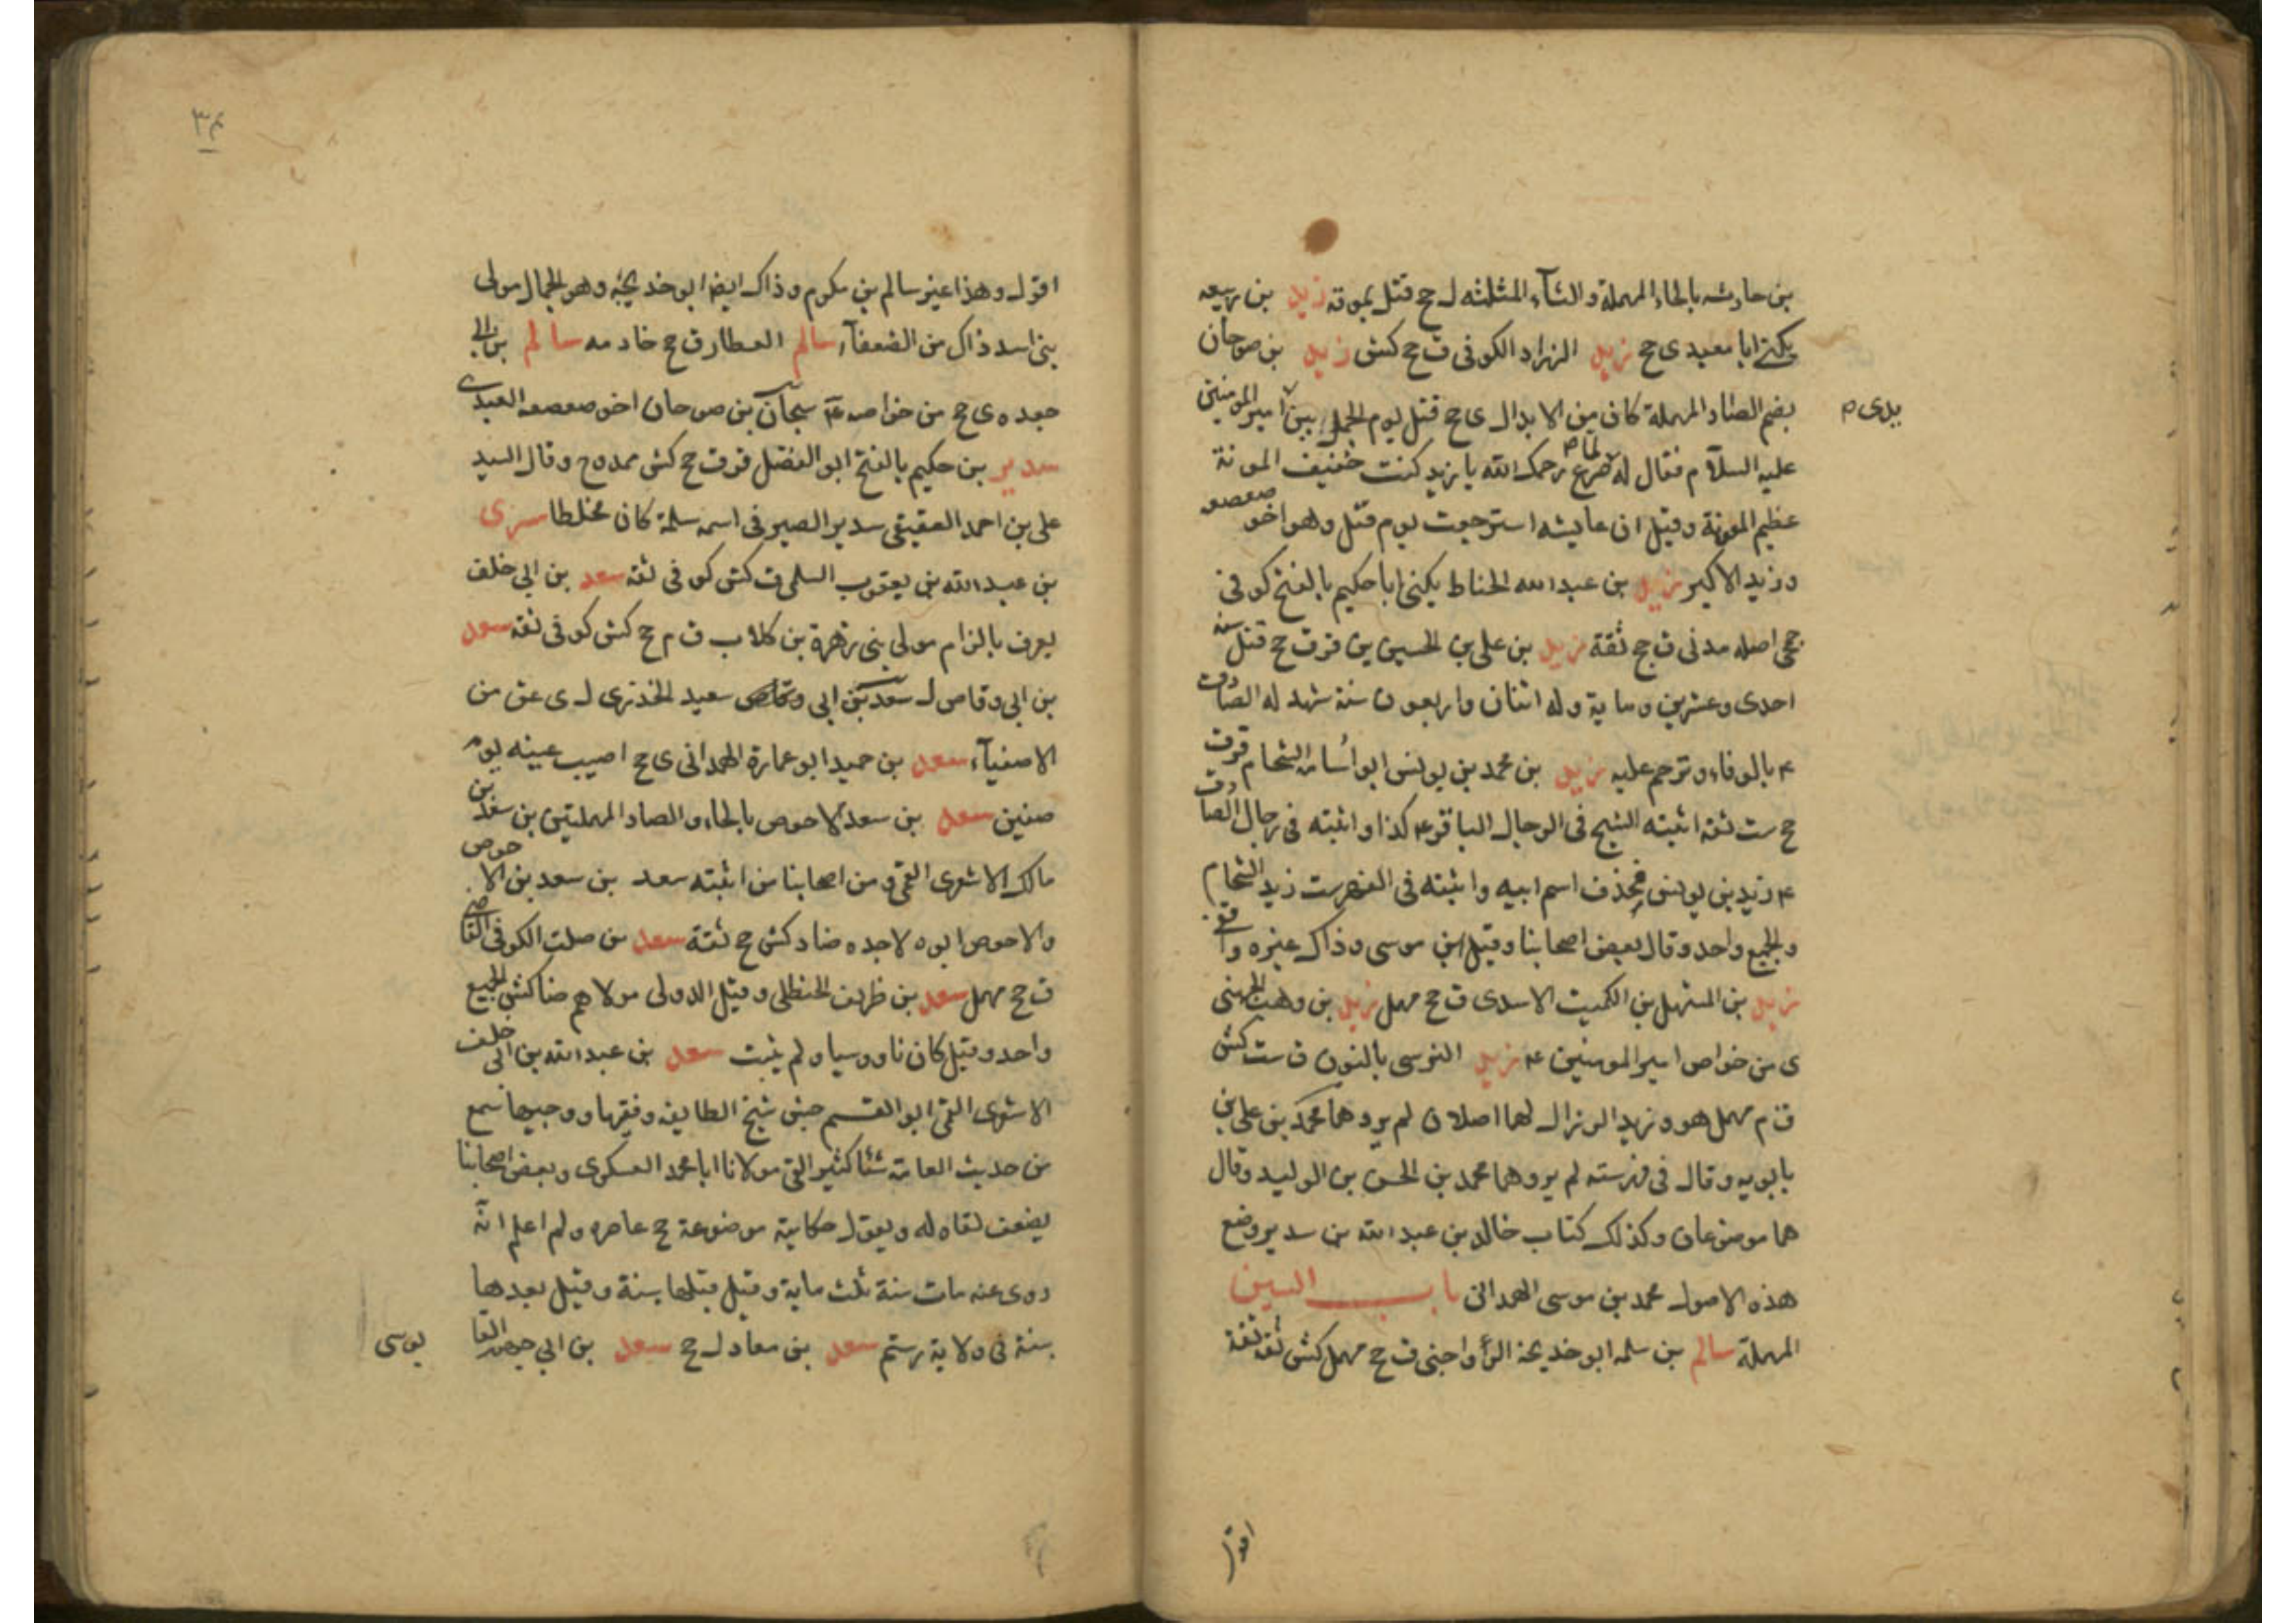 بن حارثه بالحاء المهملة والثآء المثلثه ل جح قتل بموته زيد بن ربيعه
يكنى ابا معبد ى جح زيد الزراد الكوفى ق جح كش زيد بن صوحان
بضم الصاد المهملة كان من الابدال ى جح قتل يوم الجمل بين امير المومنين
يدى م
عليه السلآم فقال له لما صرع رحمك الله يا زيد كنت خفيف المونة
عظيم المعونة وقيل ان عايشه استرجعت يوم قتل وهو اخو صعصعه
وزيد الاكبر زيد بن عبد الله الحناط يكنى ابا حكيم بالفتح كوفى
جمحى اصله مدنى ق جح ثقة زيد بن على بن الحسين ين قر ق جح قتل سنة
احدى وعشرين وماية وله اثنان واربعون سنة شهد له الصادق
ع بالوفاء وترحم عليه زيد بن محمد بن يونس ابو اسامة الشحام قر ق
جح ست ثقة اثبته الشيخ فى الرجال الباقر ع كذا واثبته فى رجال الصادق
ع زيد بن يونس فحذف اسم ابيه واثبته فى الفهرست زيد الشحام
والجميع واحد وقال بعض اصحابنا وقيل ابن موسى وذاك غيره واقفى
زيد بن المستهل بن الكميت الاسدى ق جح مهمل زيد بن وهب الجهنى
ى من خواص امير المومنين ع زيد النرسى بالنون ق ست كش
ق م مهمل هو وزيد الزراد لهما اصلان لم يروهما محمد بن على بن
بابويه وقال فى فهرسته لم يروهما محمد بن الحسن بن الوليد وقال
هما موضوعان وكذلك كتاب خالد بن عبد الله بن سدير وضع
هذه الاصول محمد بن موسى الهمدانى باب السين
المهملة سالم بن سلمه ابو خديجة الرواجنى ق جح مهمل كش ثقة ثقة
اقول
٣٤
اقول وهذا غير سالم بن مكرم وذاك ايضا ابو خديجة وهو الجمال مولى
بنى اسد ذاك من الضعفآء سالم العطار ق جح خادمه سالم بن ابى
جعده ى جح من خواصه ع سيحان بن صوحان اخو صعصعه العبدى
سدير بن حكيم بالفتح ابو الفضل قر ق جح كش ممدوح وقال السيد
على بن احمد العقيقى سدير الصيرفى اسمه سلمة كان مخلطا سرى
بن عبد الله بن يعقوب السلمى ق كش كوفى ثقه سعد بن ابى خلف
يعرف بالزام مولى بنى زهرة بن كلاب ق م جح كش كوفى ثقه سعد
بن ابى وقاص ل سعد بن ابى وقاص سعيد الخدرى ل ى عق من
الاصفيآء سعد بن حميد ابو عمارة الهمدانى ى جح اصيب عينه يوم
صفين سعد بن سعد الاحوص بالحاء والصاد المهملتين بن سعد بن
مالك الاشعرى القمى ومن اصحابنا من اثبته سعد بن سعد بن الاحوص
والاحوص ابوه لا جده ضا د كش جح ثقة سعد بن صلت الكوفى القاضى
ق جح مهمل سعد بن ظريف الحنظلى وقيل الدولى مولاهم ضا كش الجميع
واحد وقيل كان ناووسيا ولم يثبت سعد بن عبد الله بن ابى خلف
الاشعرى القمى ابو القسم جش شيخ الطايفه وفقيهها ووجيهها سمع
من حديث العامة شئا كثيرا لقى مولانا ابا محمد العسكرى وبعض اصحابنا
يضعف لقاه له ويقول حكاية موضوعة جح عاصره ولم اعلم انه
روى عنه مات سنة ثلث ماية وقيل قبلها بسنة وقيل بعدها
بسنة فى ولاية رستم سعد بن معاد ل جح سعد بن ابى